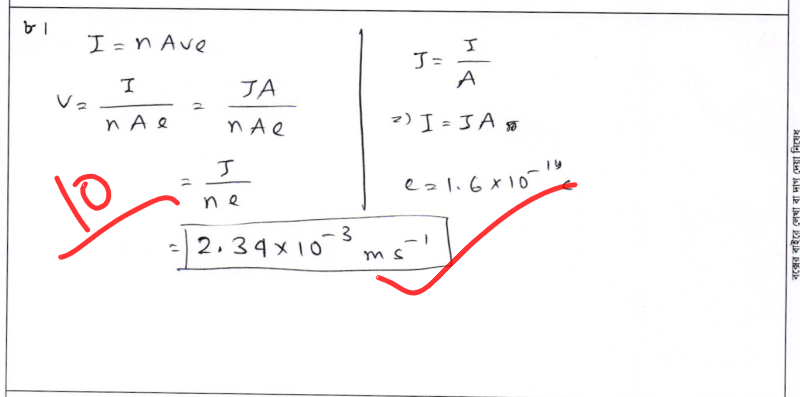 ৮।
I = nAve
v = I/nAe = JA/nAe
= J/ne
= 2.34 × 10⁻³ ms⁻¹
J = I/A
⇒) I = JA
e = 1.6 × 10⁻¹⁹ C
10
বক্সের বাইরে লেখা বা দাগ দেয়া নিষেধ